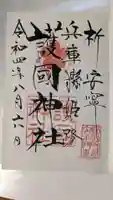 祈安寧
兵庫縣姫路
護國神社
令和四年八月六日